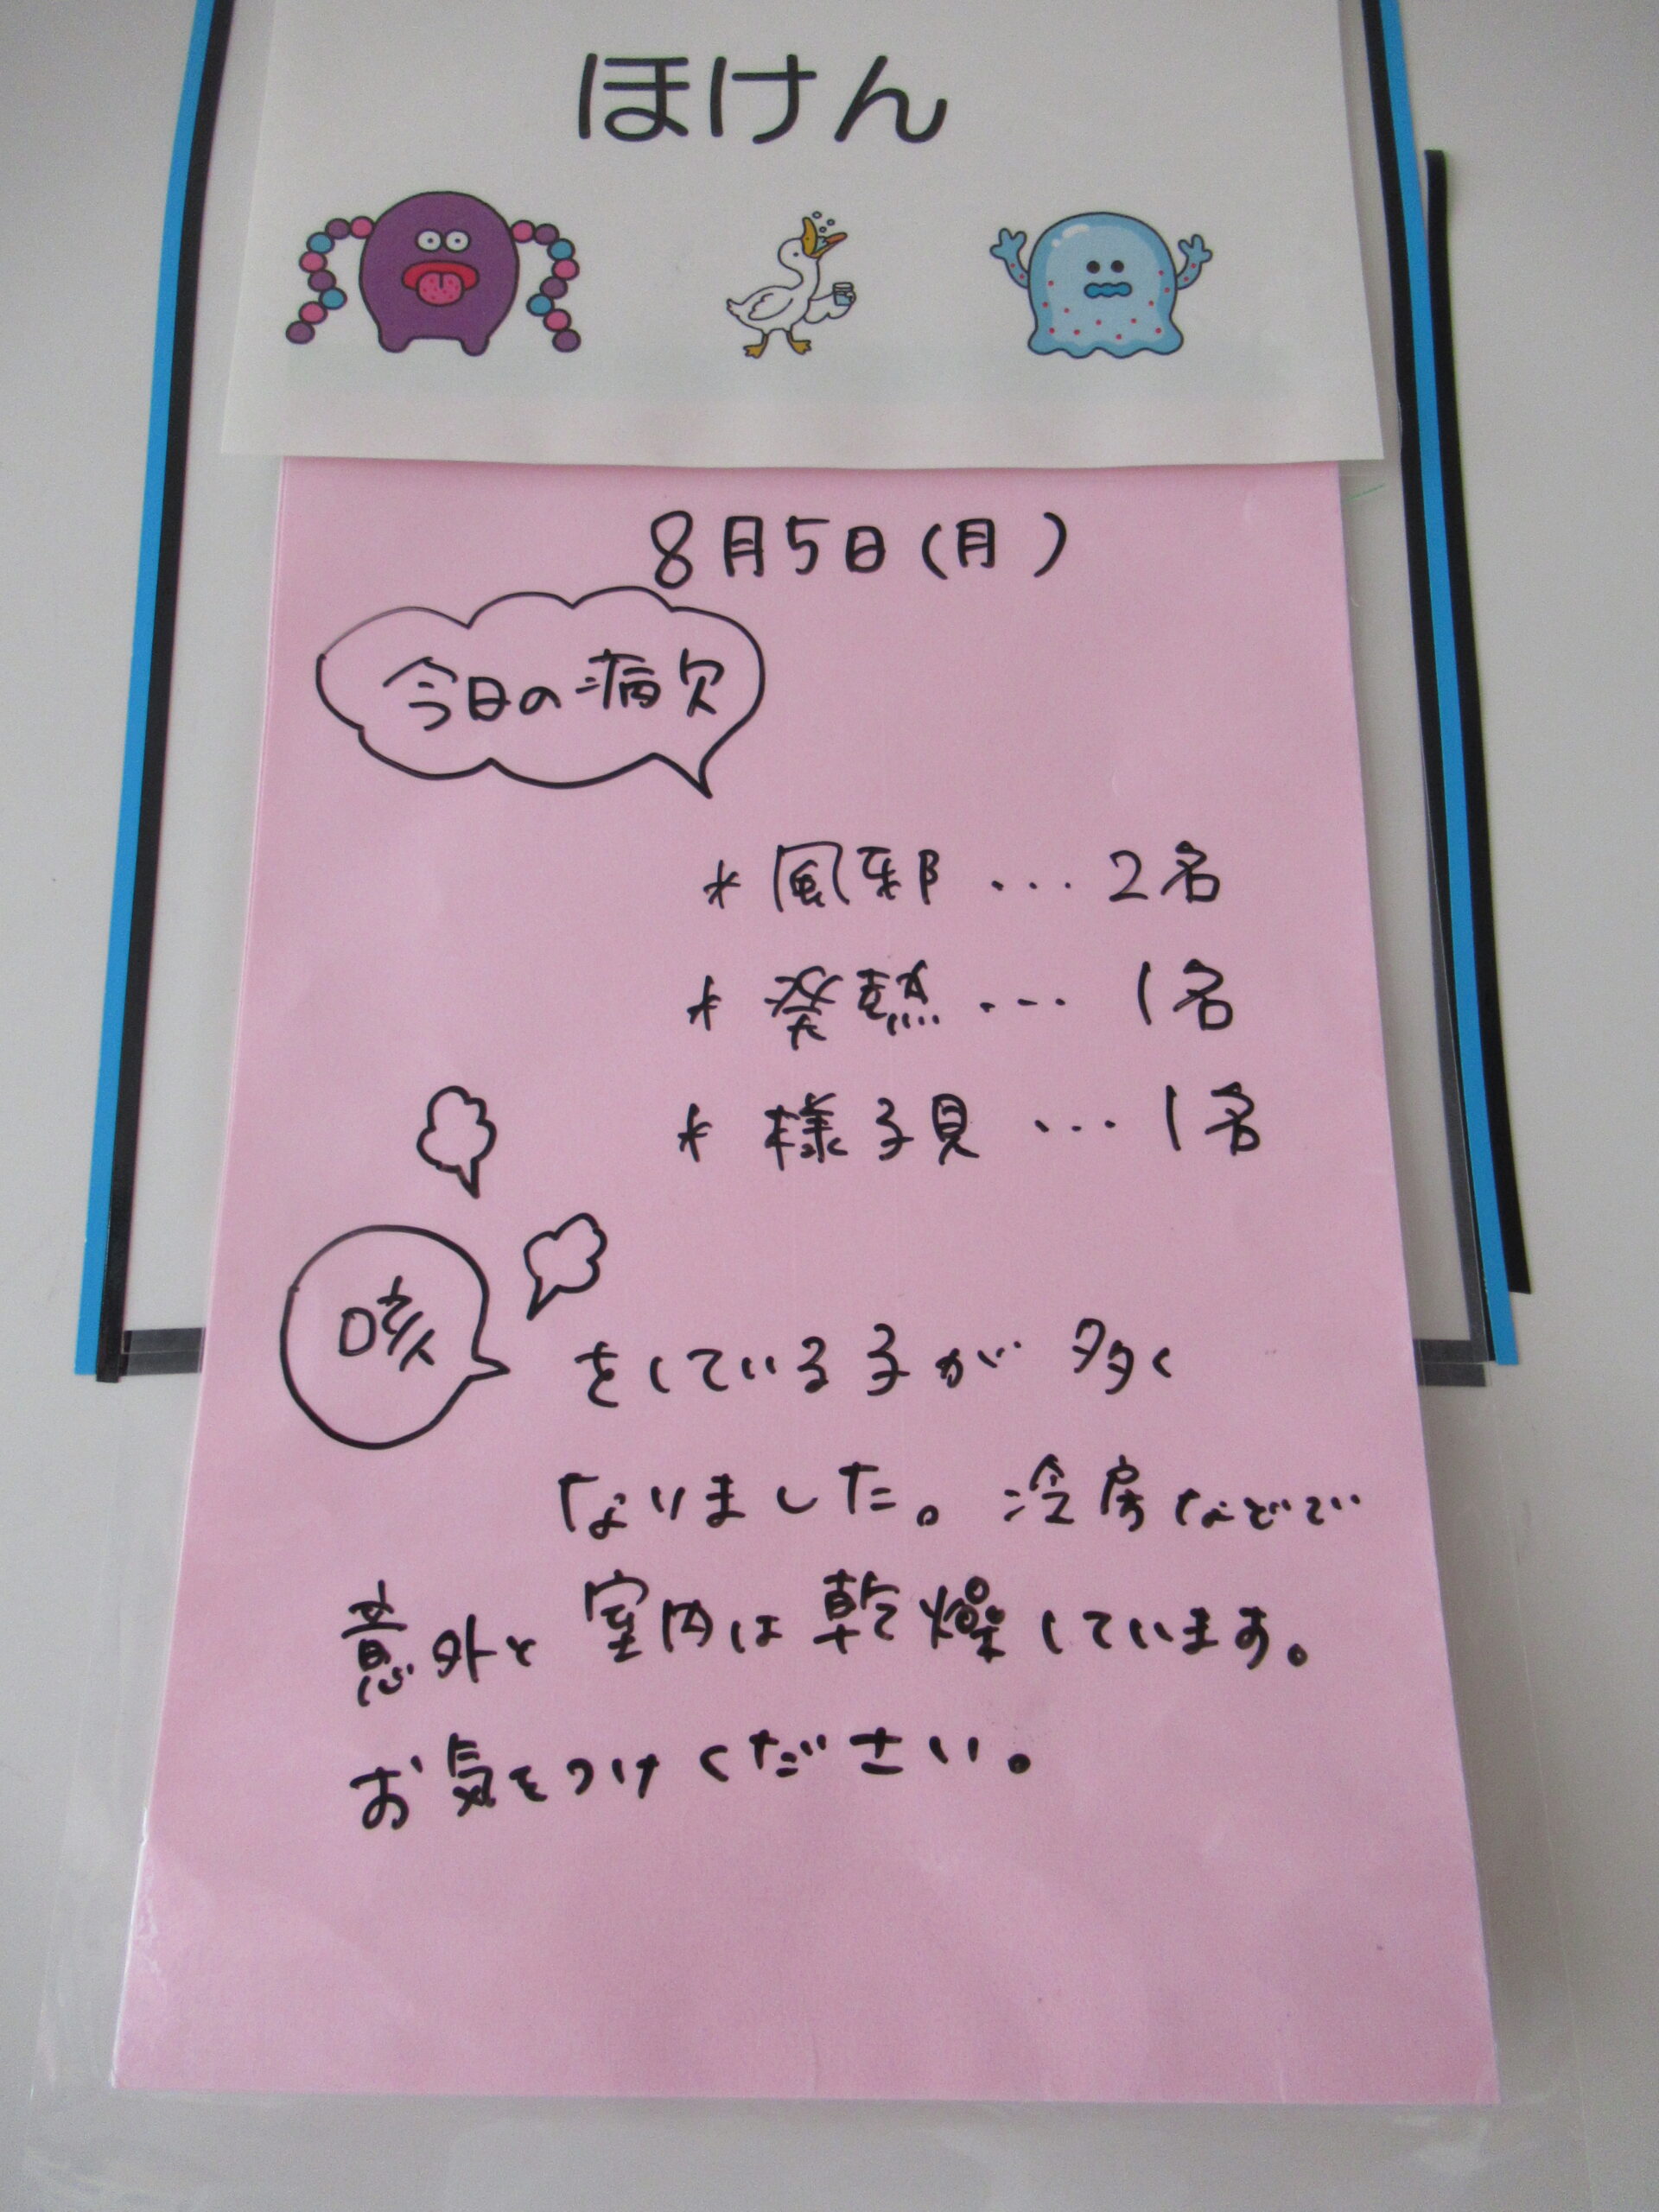 ほけん
8月5日(月)
今日の病欠
* 風邪 ... 2名
* 発熱 ... 1名
* 様子見 ... 1名
咳 をしている子が 多く
なりました。冷房などで
意外と 室内は乾燥しています。
お気をつけください。